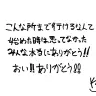 こんな所まで続けるなんて
始めた時は思ってなかった
みんな本当にありがとう!!
お祝いありがとう